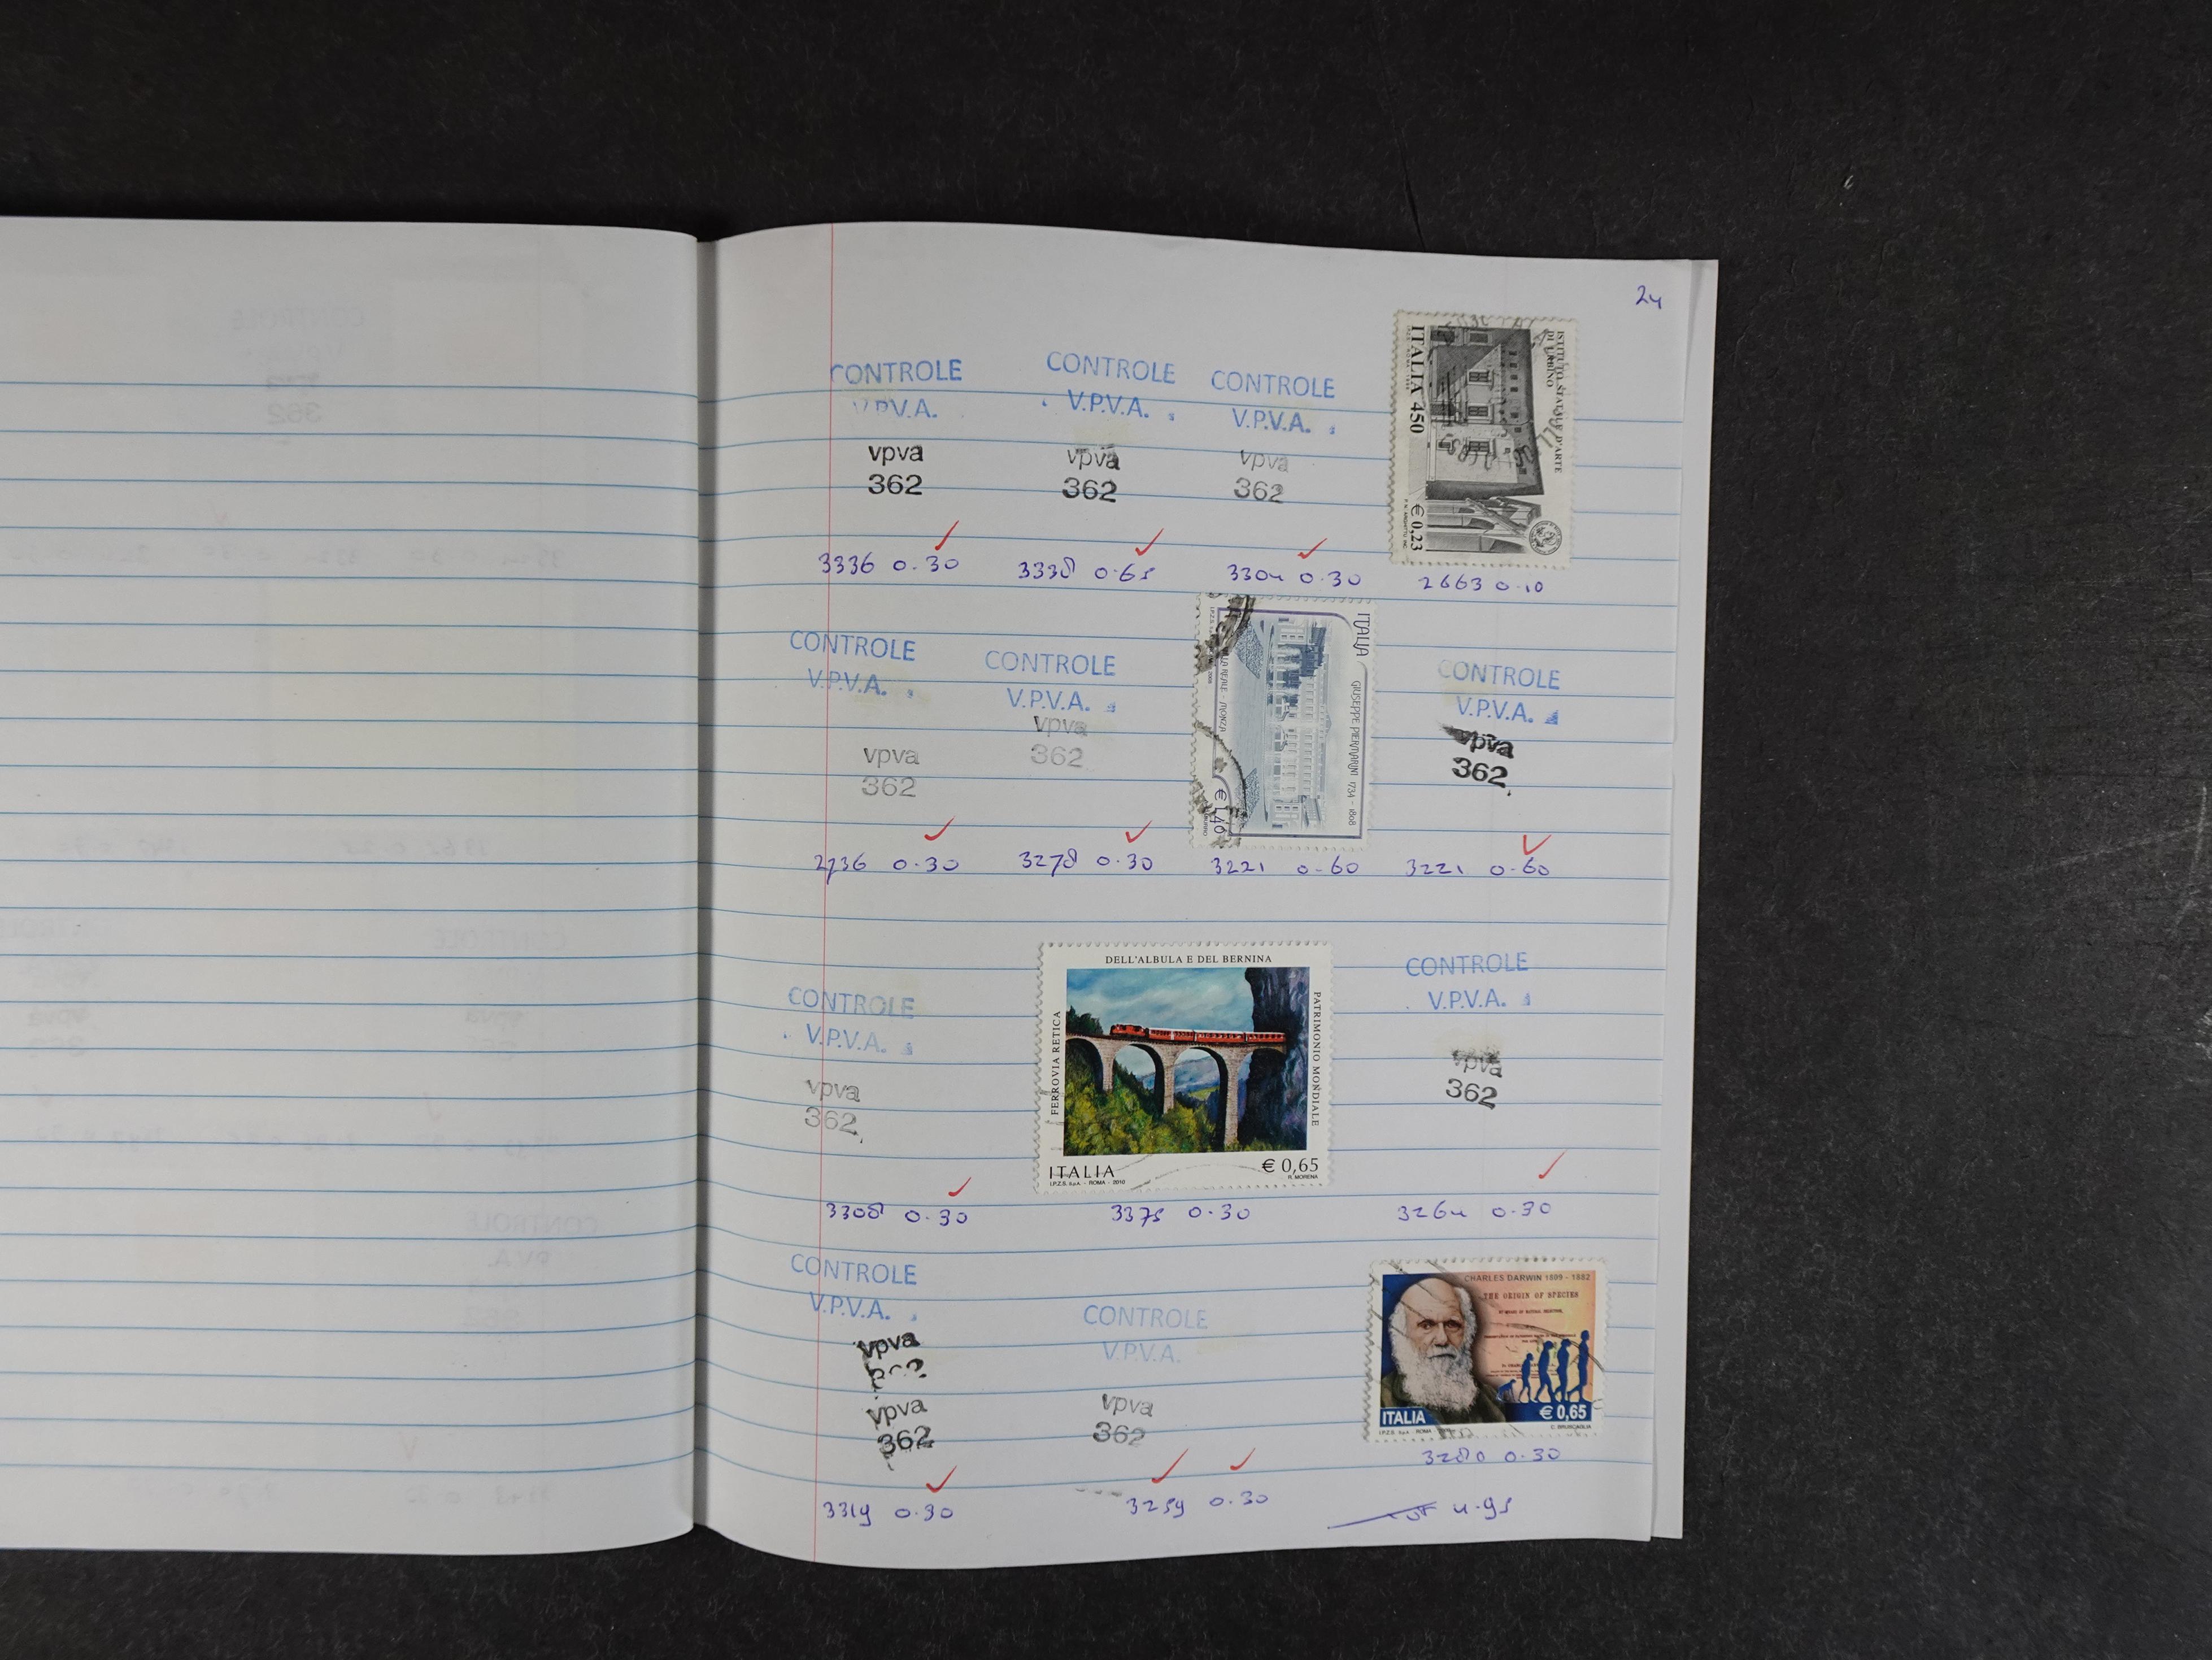 24
CONTROLE
V.P.V.A.
vpva
362
3336 0.30
CONTROLE
V.P.V.A.
vpva
362
3338 0.65
CONTROLE
V.P.V.A.
vpva
362
3304 0.30
ISTITUTO STATALE D'ARTE
DI URBINO
ITALIA 450
€ 0,23
2663 0.10
CONTROLE
V.P.V.A.
vpva
362
2736 0.30
CONTROLE
V.P.V.A.
vpva
362
3278 0.30
ITALIA
GIUSEPPE PIERMARINI 1734 - 1808
VILLA REALE - MONZA
€ 1,40
3221 0.60
CONTROLE
V.P.V.A.
vpva
362
3221 0.60
CONTROLE
V.P.V.A.
vpva
362
3308 0.30
DELL'ALBULA E DEL BERNINA
FERROVIA RETICA
PATRIMONIO MONDIALE
ITALIA
€ 0,65
I.P.Z.S. S.p.A. - ROMA - 2010
R. MORENA
3375 0.30
CONTROLE
V.P.V.A.
vpva
362
3264 0.30
CONTROLE
V.P.V.A.
vpva
vpva
362
3319 0.30
CONTROLE
V.P.V.A.
vpva
362
3259 0.30
CHARLES DARWIN 1809 - 1882
THE ORIGIN OF SPECIES
ITALIA
€ 0,65
I.P.Z.S. S.p.A. - ROMA
C. BRUSCAGLIA
3280 0.30
4.95